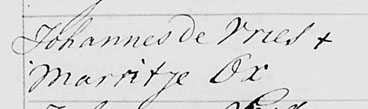 Johannes de Vries +
Marritje Ox